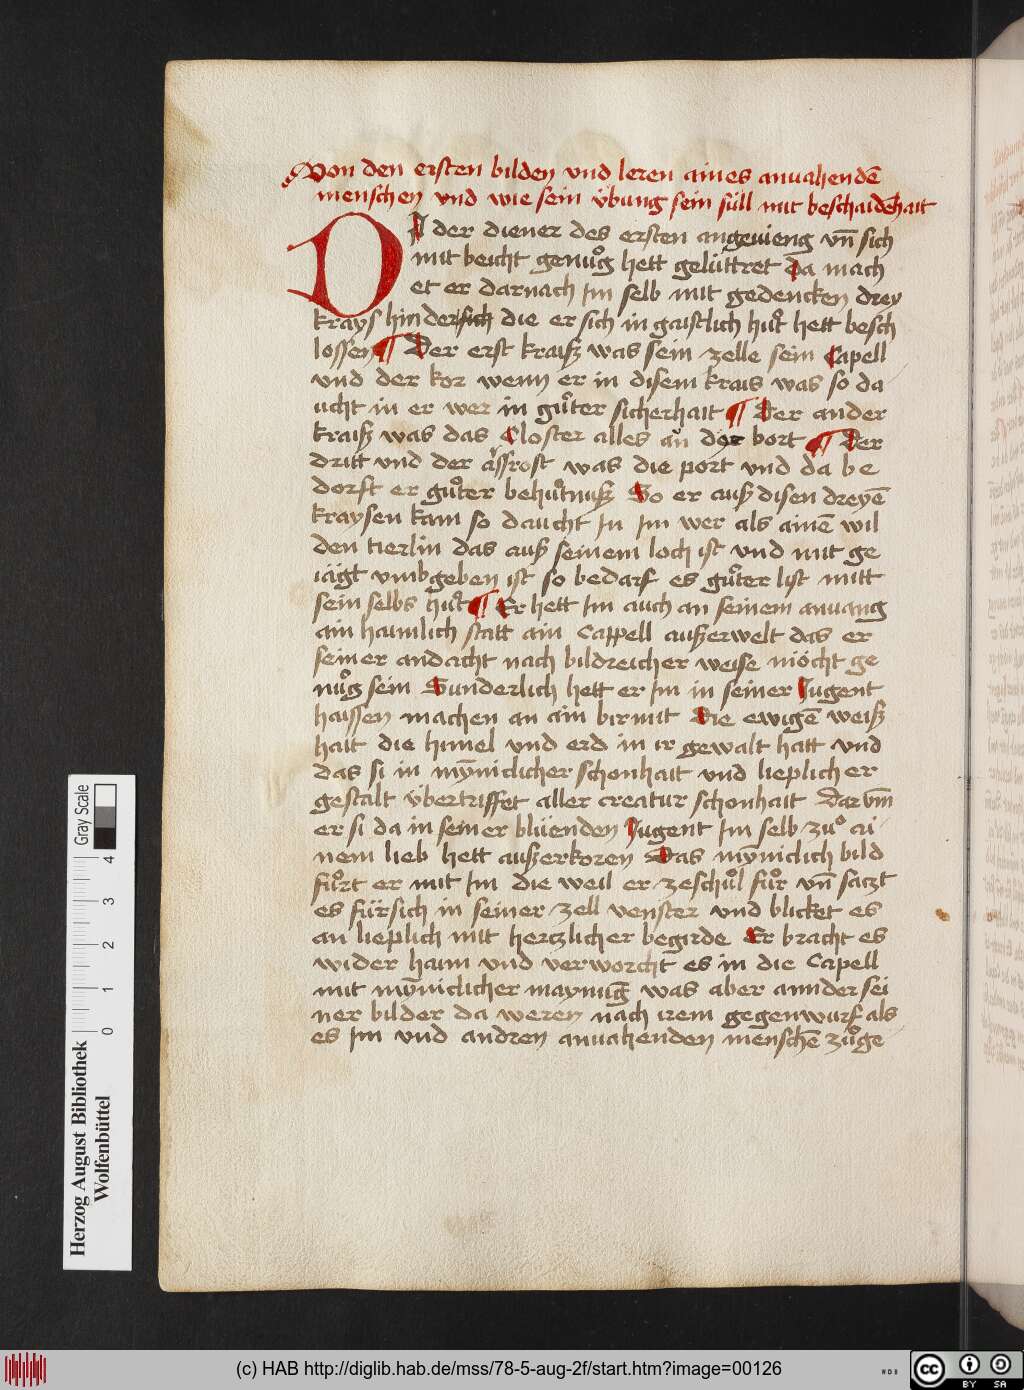 Von den ersten bilden vnd leren aines anuahendē
menschen vnd wie sein v̈bung sein süll mit beschaidēhait
DA der diener des ersten angevieng vn̄ sich
mit beicht genůg hett gelüttret da mach
et er darnach Im selb mit gedencken drey
krays hindersich die er sich in gaistlich hůt hett besch
lossen ¶ Der erst kraiß was sein zelle sein Capell
vnd der kor wenn er in disem krais was so da
ucht in er wer in gůter sicherhait ¶ Der ander
kraiß was das Closter alles an der bort ¶ Der
dritt vnd der ässrost was die port vnd da be
dorft er gůter behůtnuß So er auß disen dreyē
kraysen kam so daucht In Im wer als ainē wil
den tierlin das auß seinem loch ist vnd mit ge
iägt vmbgeben ist so bedarf es gůter list mitt
sein selbs hůt ¶ Er hett Im auch an seinem anuang
ain haimlich statt ain Cappell außerwelt das er
seiner andacht nach bildreicher weise möcht ge
nůg sein Sunderlich hett er Im in seiner Jugent
haissen machen an ain birmit die ewigē weiß
hait die himel vnd erd in ir gewalt hatt vnd
das si in mÿniclicher schonhait vnd lieplicher
gestalt v̈bertriffet aller creatur schonhait Darvm̄
er si da in seiner blüenden Jugent Im selb zů ai
nem lieb hett außerkoren Das mÿniclich bild
fůrt er mit Im die weil er ze schůl fůr vn̄ saczt
es für sich in seiner zell venster vnd blicket es
an lieplich mit hertzlicher begirde Er bracht es
wider haim vnd verworcht es in die Capell
mit mÿniclicher maynung was aber annder sei
ner bilder da weren nach irem gegenwurf als
es Im vnd andren anuahenden menschē zůge
Herzog August Bibliothek
Wolfenbüttel
0 1 2 3 4
Gray Scale
(c) HAB http://diglib.hab.de/mss/78-5-aug-2f/start.htm?image=00126
WDB
cc BY SA